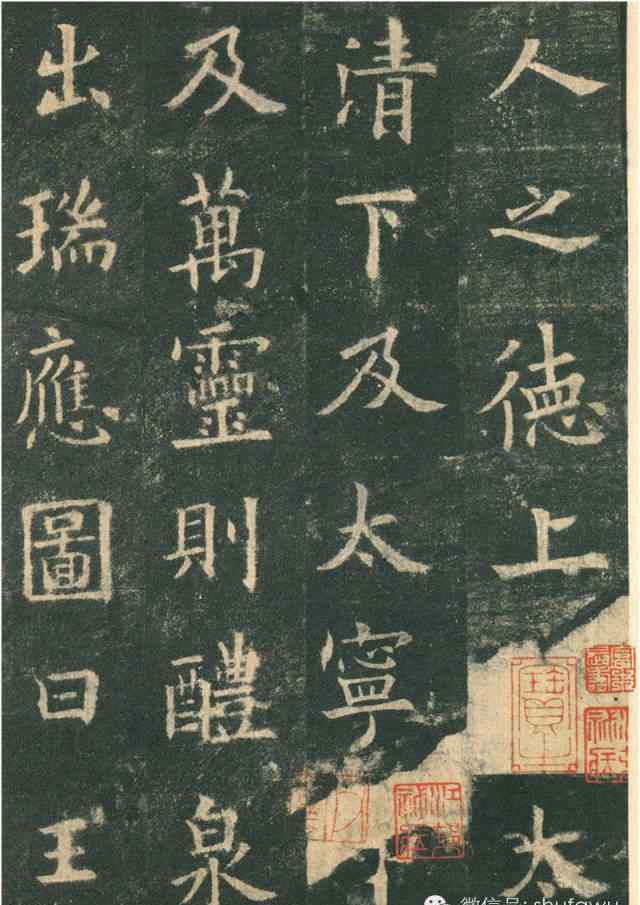 人之德上太
清下及太寧
及萬靈則醴泉
出瑞應圖曰王
微信号: shufawu